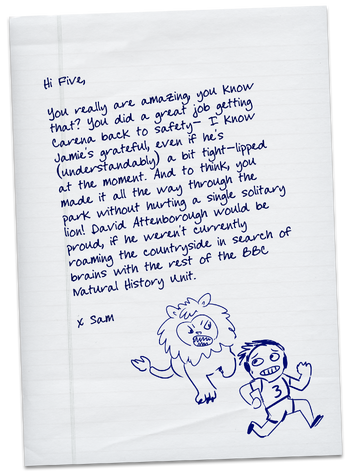 Hi Five,
You really are amazing, you know
that? You did a great job getting
Carena back to safety– I know
Jamie's grateful, even if he's
(understandably) a bit tight-lipped
at the moment. And to think, you
made it all the way through the
park without hurting a single solitary
lion! David Attenborough would be
proud, if he weren't currently
roaming the countryside in search of
brains with the rest of the BBC
Natural History Unit.
x Sam
3